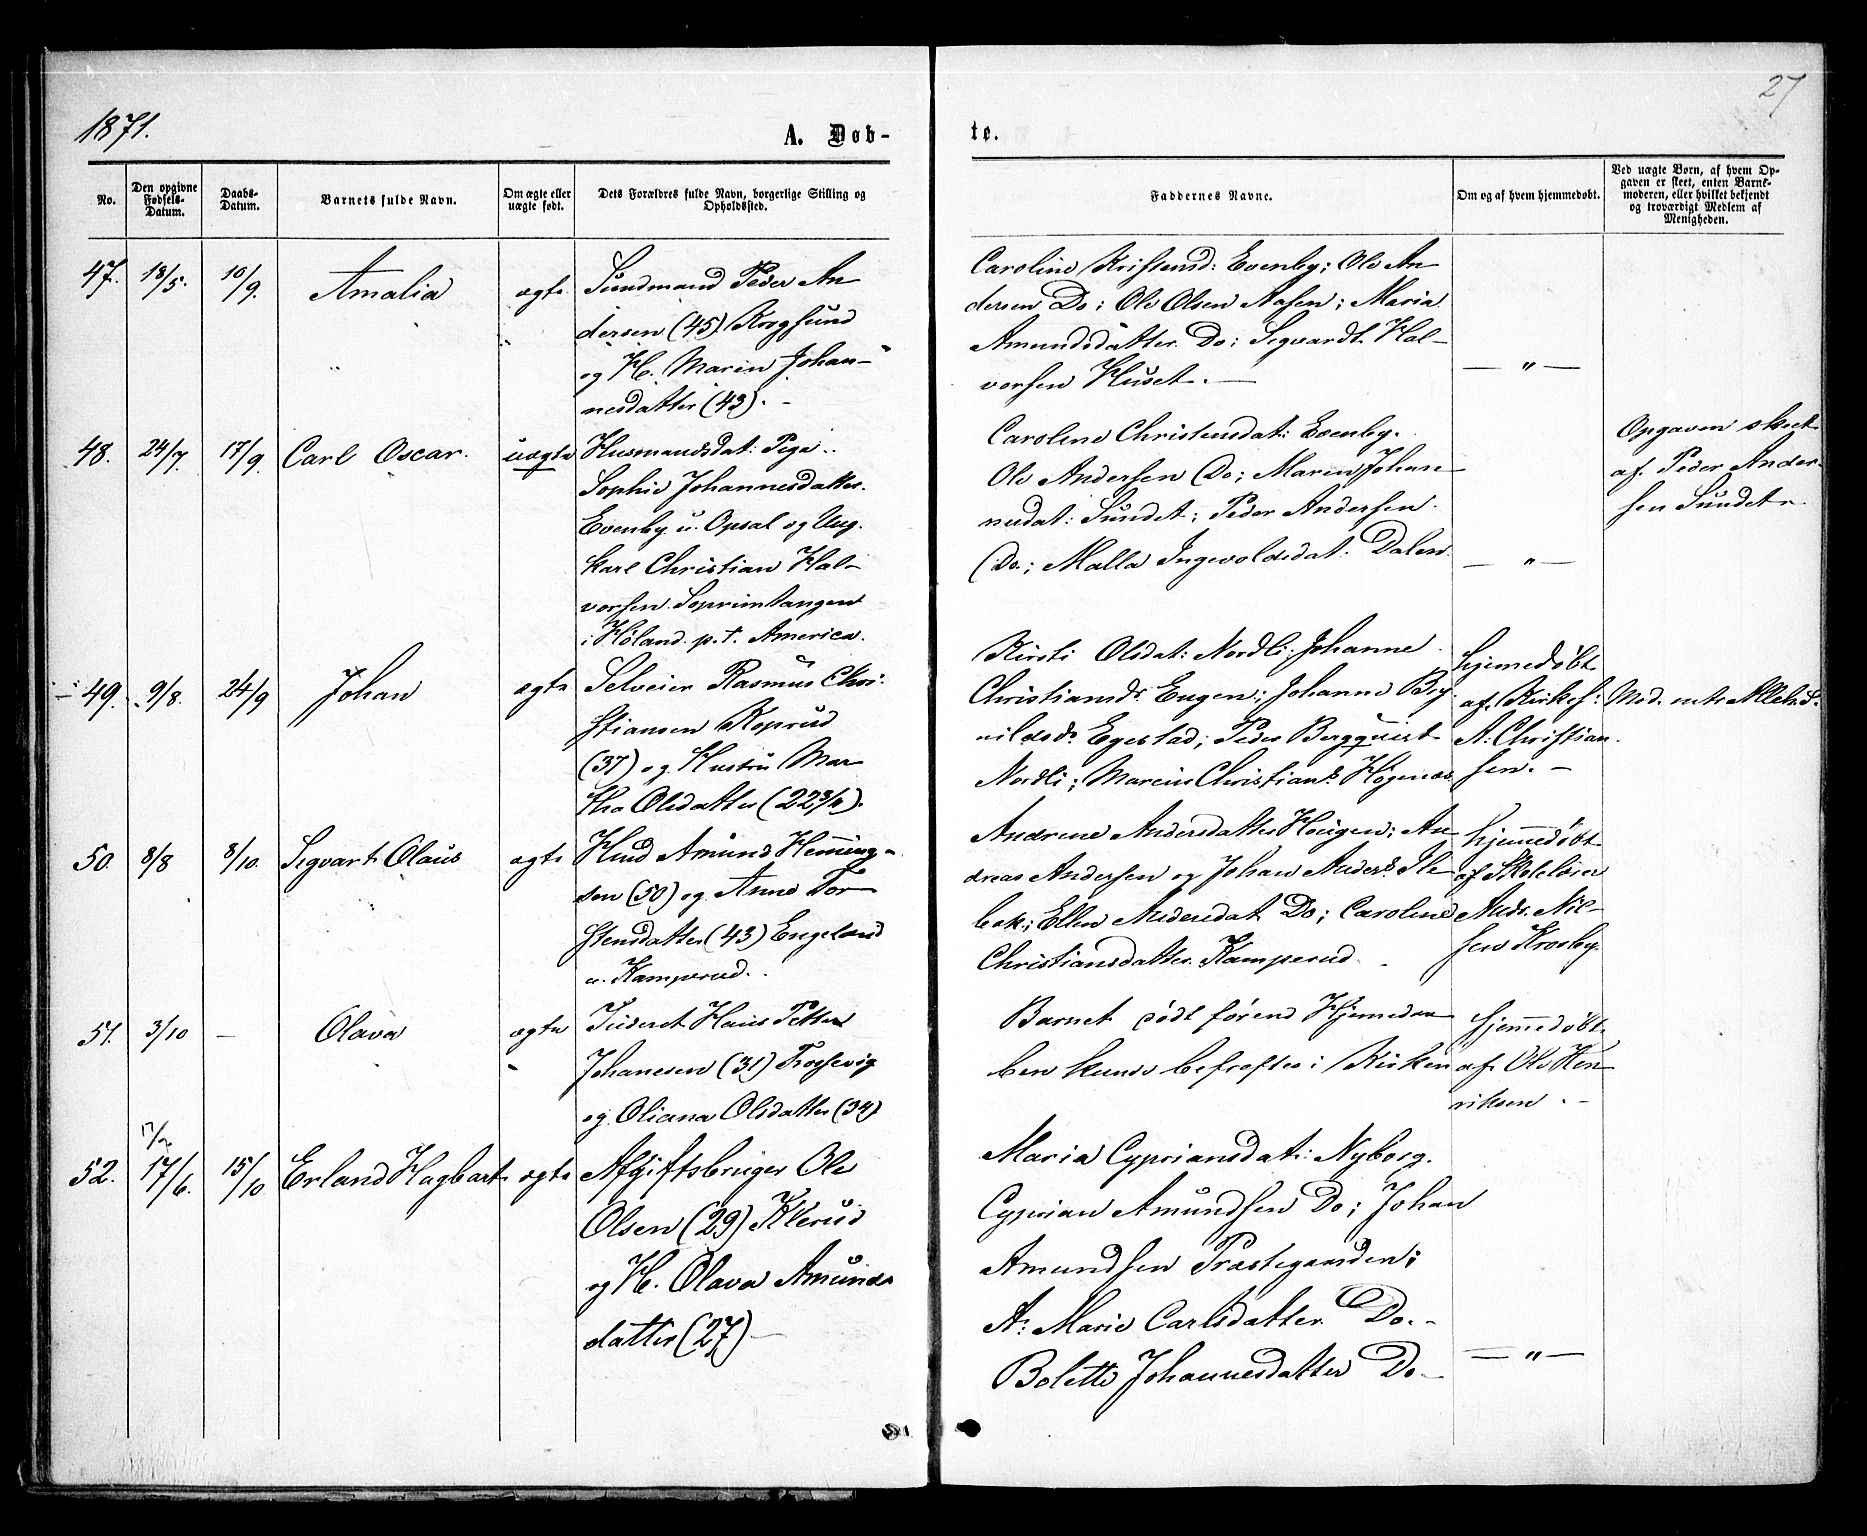 27
1871.
A. Døb-
te.
No.
Den opgivne Fødsels-Datum.
Daabs-Datum.
Barnets fulde Navn.
Om ægte eller uægte født.
Dets Forældres fulde Navn, borgerlige Stilling og Opholdssted.
Faddernes Navne.
Om og af hvem hjemmedøbt.
Ved uægte Børn, af hvem Opgaven er skeet, enten Barnemoderen, eller hvilket bekjendt og troværdigt Medlem af Menigheden.
47. 18/5. 10/9. Amalia ægte
Sundmand Peder An
dersen (45) Krogsund
og H. Maren Johan-
nesdatter (43). -
Caroline Kristensd: Evenby; Ole An
dersen Do; Ole Olsen Aasen; Maria
Amundsdatter Do; Segvardt Hal-
vorsen Huset. —
— " —
48. 24/7 17/9 Carl Oscar. uægte
Husmandsdat: Pige
Sophie Johannesdatter
Evenby u. Opsal og Ung-
karl Christian Hal-
vorsen Soprimtangen
i Høland p.t. America.
Caroline Christensdat: Evenby.
Ole Andersen Do; Maren Johan
nesdat: Sundet; Peder Andersen
Do.; Malla Ingevoldsdat: Dalen
— " —
Opgaven skeet
af Peder Ander-
sen Sundet
49. 9/8. 24/9 Johan ægte
Selveier Rasmus Chri-
stiansen Koprud
(37) og Hustru Mar
tha Olsdatter (22 3/4).
Kirsti Olsdat: Nordli; Johanne
Christiansd: Engen; Johanne
Egestad; Peder Bergquist
Nordli; Marcus Christians.
hjemedøbt
af Kirkes:
A. Christian
sen. -
50. 8/8 8/10. Segvart Olaus ægte
Husd Amund Hemming-
sen (50) og Anne Tor
stensdatter (43) Engeland
u. Kamperud.
Andrene Andersdatter Haugen; An
dreas Andersen og Johan Anders.
bek; Ellen Andersdat Do; Caroline
Christiansdatter Kamperud
hjemmedøbt
af Skolelærer
Ands. Nil-
sen Krosby.
51. 3/10 — Olava ægte
Inderst Hans Petter
Johanesen (31) Trosevig
og Oliana Olsdatter (34)
Barnet dødt førend Hjemmedaa
ben kunde befæstes i Kirken
hjemmedøbt
af Ole Hen
riksen. -
52. 17/6. 15/10 Erland Hagbart ægte
Afgiftsbruger Ole
Olsen (29) Klerud
og H. Olava Amunds
datter (27) —
Maria Cypriansdat: Nyborg.
Cyprian Amundsen Do; Johan
Amundsen Præstegaarden;
A: Marie Carlsdatter Do.-
Bolette Johannesdatter Do -
— " —